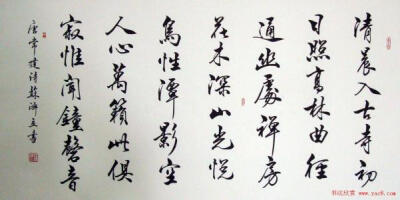 清晨入古寺初
日照高林曲徑
通幽處禪房
花木深山光悦
鳥性潭影空
人心萬籟此俱
寂惟聞鐘磬音
唐常建诗
书法欣赏
www.yac8.com